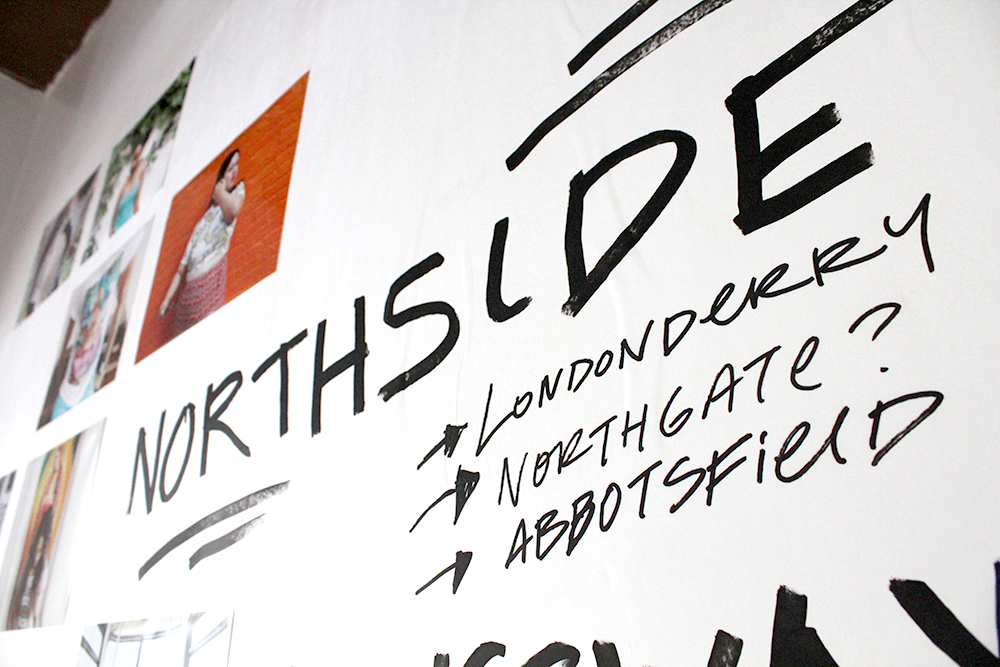 NORTHSIDE
→ LONDONDERRY
→ NORTHGATE?
→ ABBOTSFIELD